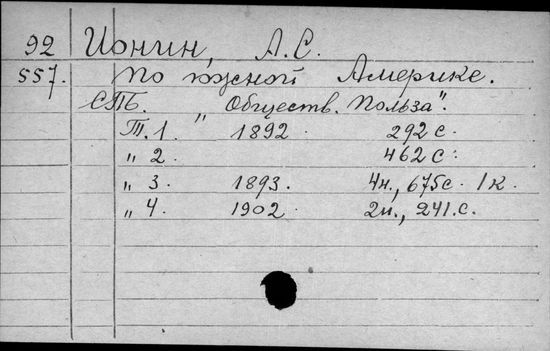 92 Ионин, А.С.
557. По южной Америке.
СПБ. „Обществ. Польза".
Т. 1. 1892. 292 с.
„ 2. 462 с.
„ 3. 1893. 4н., 675с. 1 к.
„ 4. 1902. 2н., 241.с.